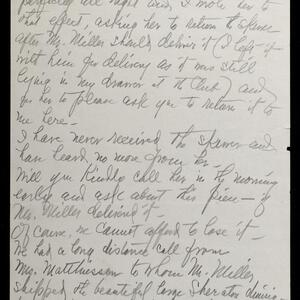 purposely are right and, I wrote her to
that effect, asking her to return the spares
after Mr. Miller should deliver it (I left it
with him for delivery as it was still
lying in my drawer at the Club) and
for her to please ask you to return it to
me here—
I have never received the and
have heard no more from
Will you kindly call her in the morning
early and ask about this piece— if
Mr. Miller delivered it—
Of course, we cannot afford to lose it—
We had a long distance call from
Mr. Matthiessen to whom Mr. Miller
shipped the beautiful large Sheraton dining